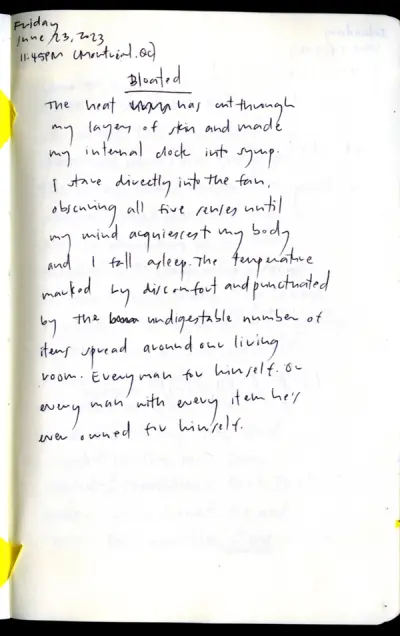 Friday
June 23, 2023
11:45PM (Montreal, QC)
Bloated
The heat has cut through
my layers of skin and made
my internal clock into syrup.
I stare directly into the fan,
obscuring all five senses until
my mind acquiescest my body
and I fall asleep. The temperature
marked by discomfort and punctuated
by the undigestable number of
items spread around our living
room. Every man for himself. Or
every man with every item he's
ever owned for himself.